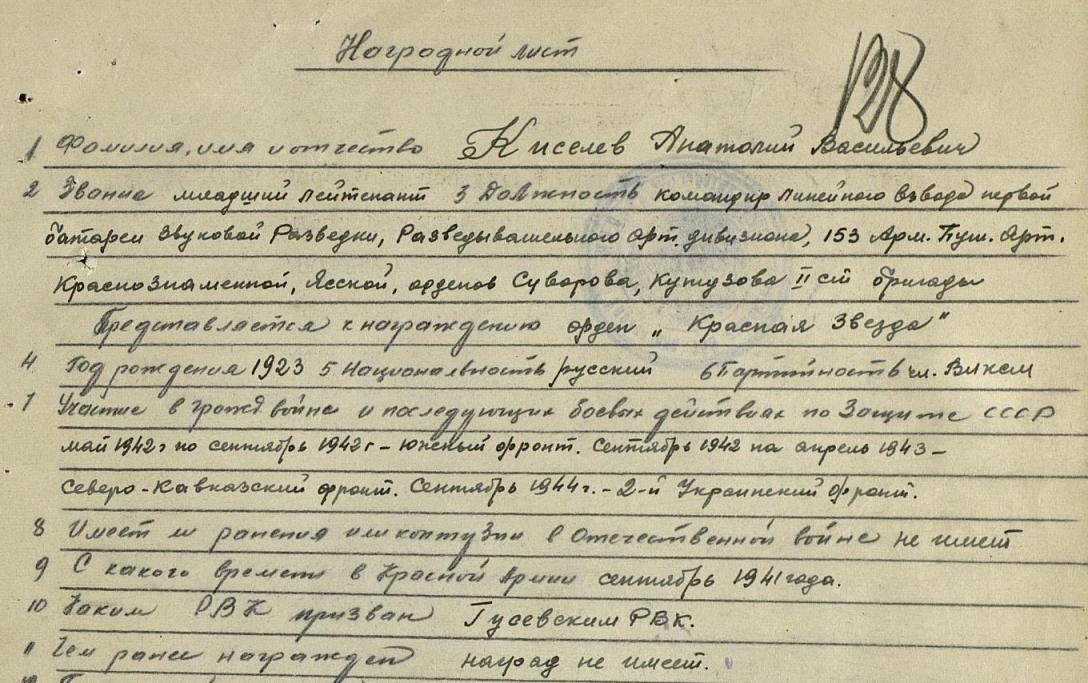 Наградной лист
128
1 Фамилия, имя и отчество Киселев Анатолий Васильевич
2 Звание младший лейтенант 3 Должность командир линейного взвода первой
батареи Звуковой Разведки, Разведывательного арт. дивизиона, 153 Арм. Пуш. Арт.
Краснознаменной, Ясской, орденов Суворова, Кутузова II ст бригады
Представляется к награждению орден „Красная Звезда"
4 Год рождения 1923 5 Национальность русский 6 Партийность чл. Влксм
7 Участие в гражд войне и последующих боевых действиях по Защите СССР
май 1942г по сентябрь 1942г - Южный фронт. Сентябрь 1942 по апрель 1943 -
Северо-Кавказский фронт. Сентябрь 1944г. - 2-й Украинский фронт.
8 Имеет ли ранения или контузии в Отечественной войне не имеет
9 С какого времени в Красной Армии сентябрь 1941 года.
10 Каким РВК призван Гусевским РВК.
11 Чем ранее награжден наград не имеет.